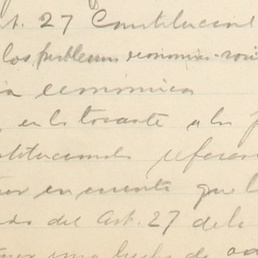 t. 27 Constitucional
los problemas económico-soci
ia económica
en lo tocante a los p
stitucionales referen
er en cuenta que l
do del Art. 27 de la
una lucha de